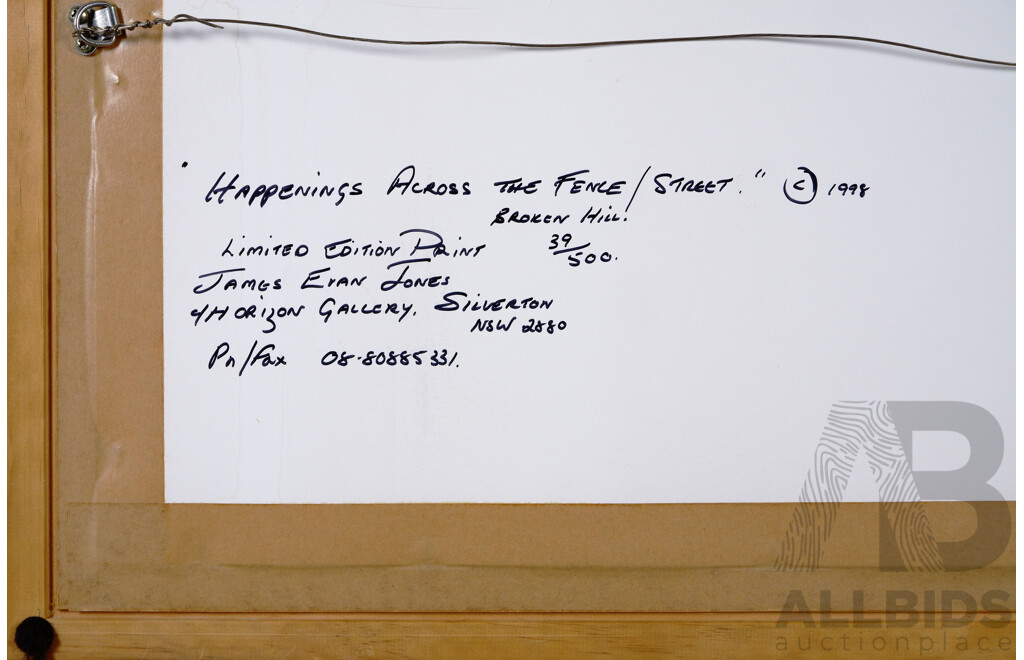 "Happenings Across The Fence/Street." © 1998
Broken Hill.
Limited Edition Print 39/500.
James Evan Jones
c/Horizon Gallery. Silverton
NSW 2880
Ph/Fax 08-80885331.
AB
ALLBIDS
auctionplace